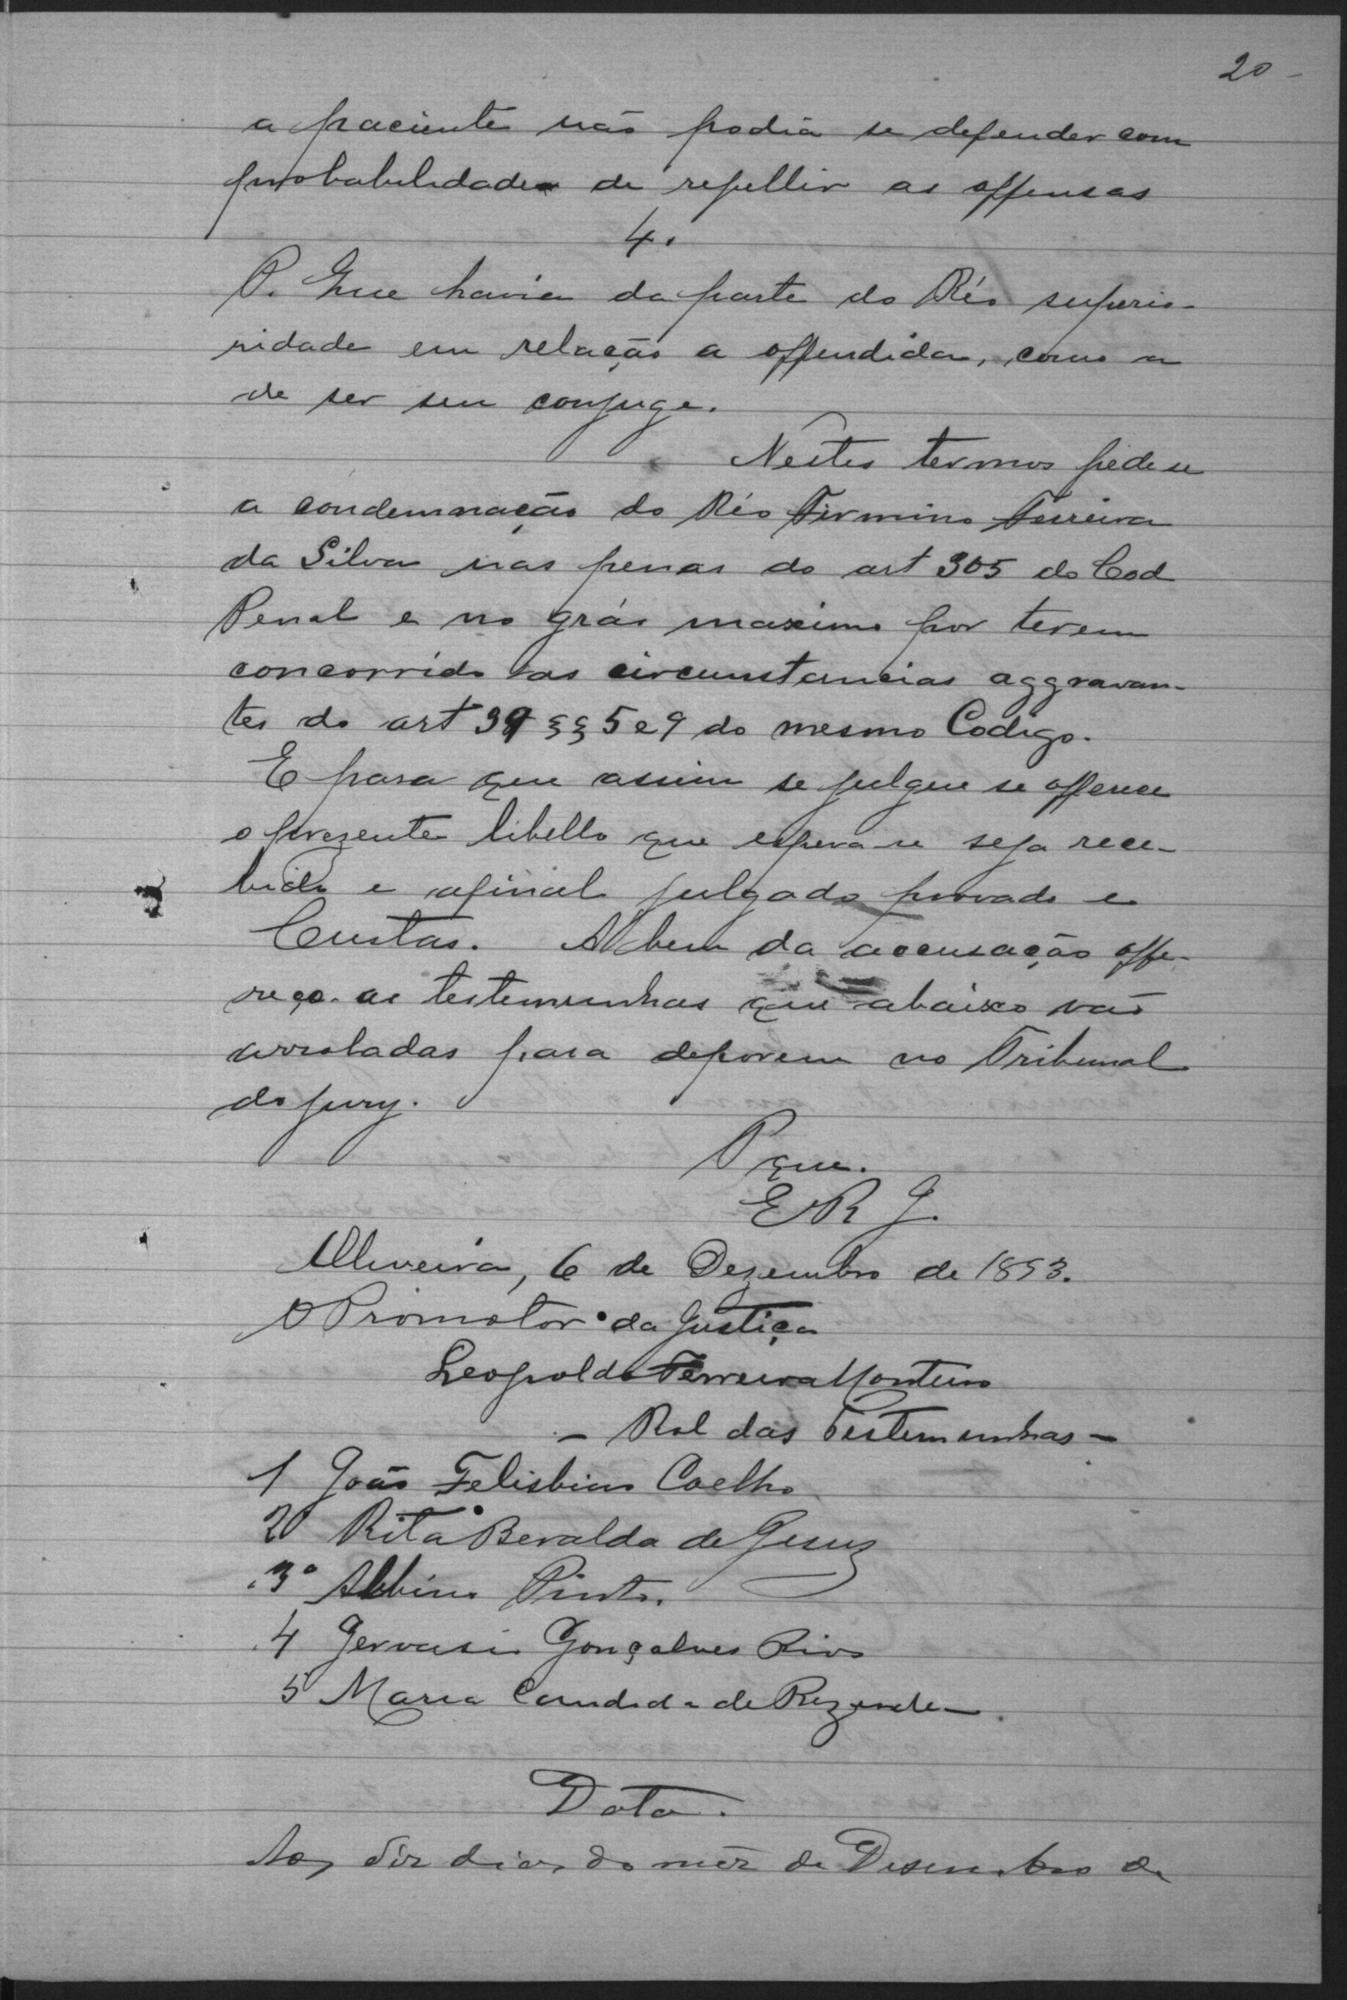 20
a paciente não podia se defender com
probabilidade de repellir as offensas
4.
P. Que havia da parte do Réo superio-
ridade em relação a offendida, como a
de ser seu conjuge.
Nestes termos pede se
a condemnação do Réo Firmino Ferreira
da Silva nas penas do art 305 do Cod
Penal e no gráo maximo por terem
concorrido as circumstancias aggravan-
tes do art 39 §§ 5 e 9 do mesmo Codigo.
E para que assim se julgue se offerece
o prezente libello que espera-se seja rece-
bido e afinal julgado provado e
Custas. A bem da accusação offe-
reço as testemunhas que abaixo vão
arroladas para deporem no Tribunal
do jury.
P que.
E R J.
Oliveira, 6 de Dezembro de 1893.
O Promotor da Justiça
Leopoldo Ferreira Monteiro
- Rol das Testemunhas -
1 João Felisbino Coelho
2º Rita Beralda de Jesuz
3º Albino Pinto.
4 Gervasio Gonçalves Rios
5 Maria Candida de Rezende
Data.
Aos dez dias do mez de Desembro de